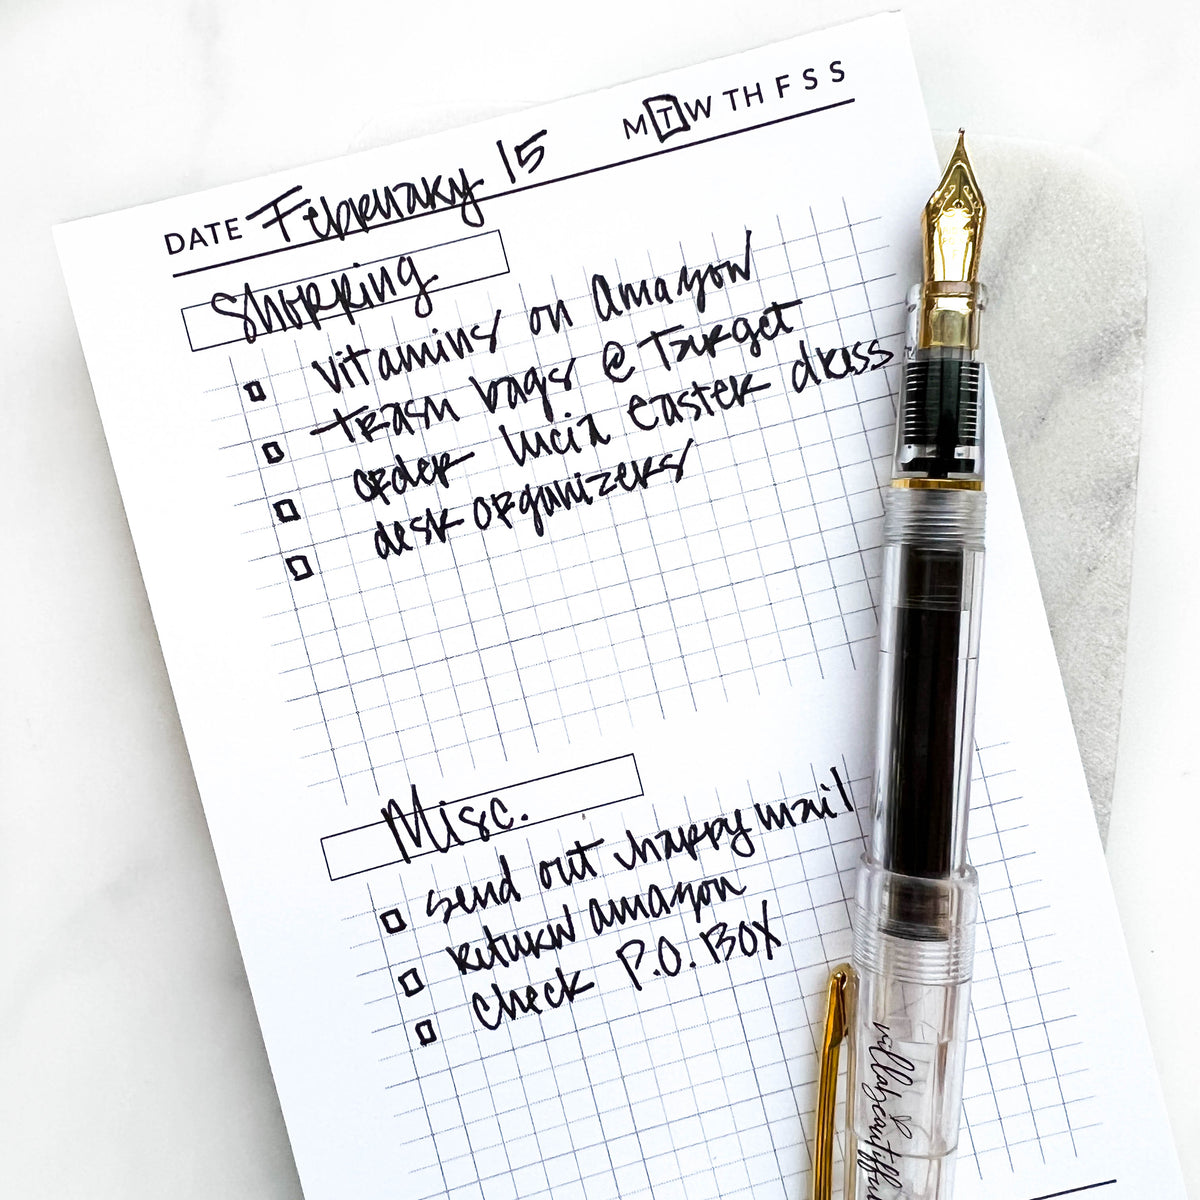 DATE February 15
M T W TH F S S
Shopping
vitamins on amazon
trash bags @ Target
order lucia easter dress
desk organizers
Misc.
send out happy mail
return amazon
check P.O. BOX
villabeautifful